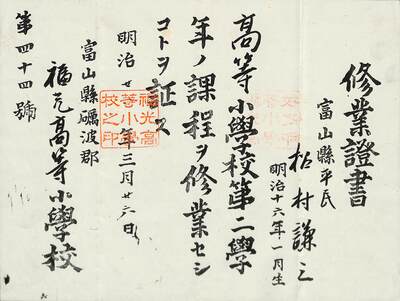 修業證書
富山縣平民
松村謙三
明治十六年一月生
高等小學校第二學
年ノ課程ヲ修業セシ
コトヲ証ス
明治廿 年三月廿六日
福光高
等小學
校之印
富山縣礪波郡
福光高等小學校
第四十四號